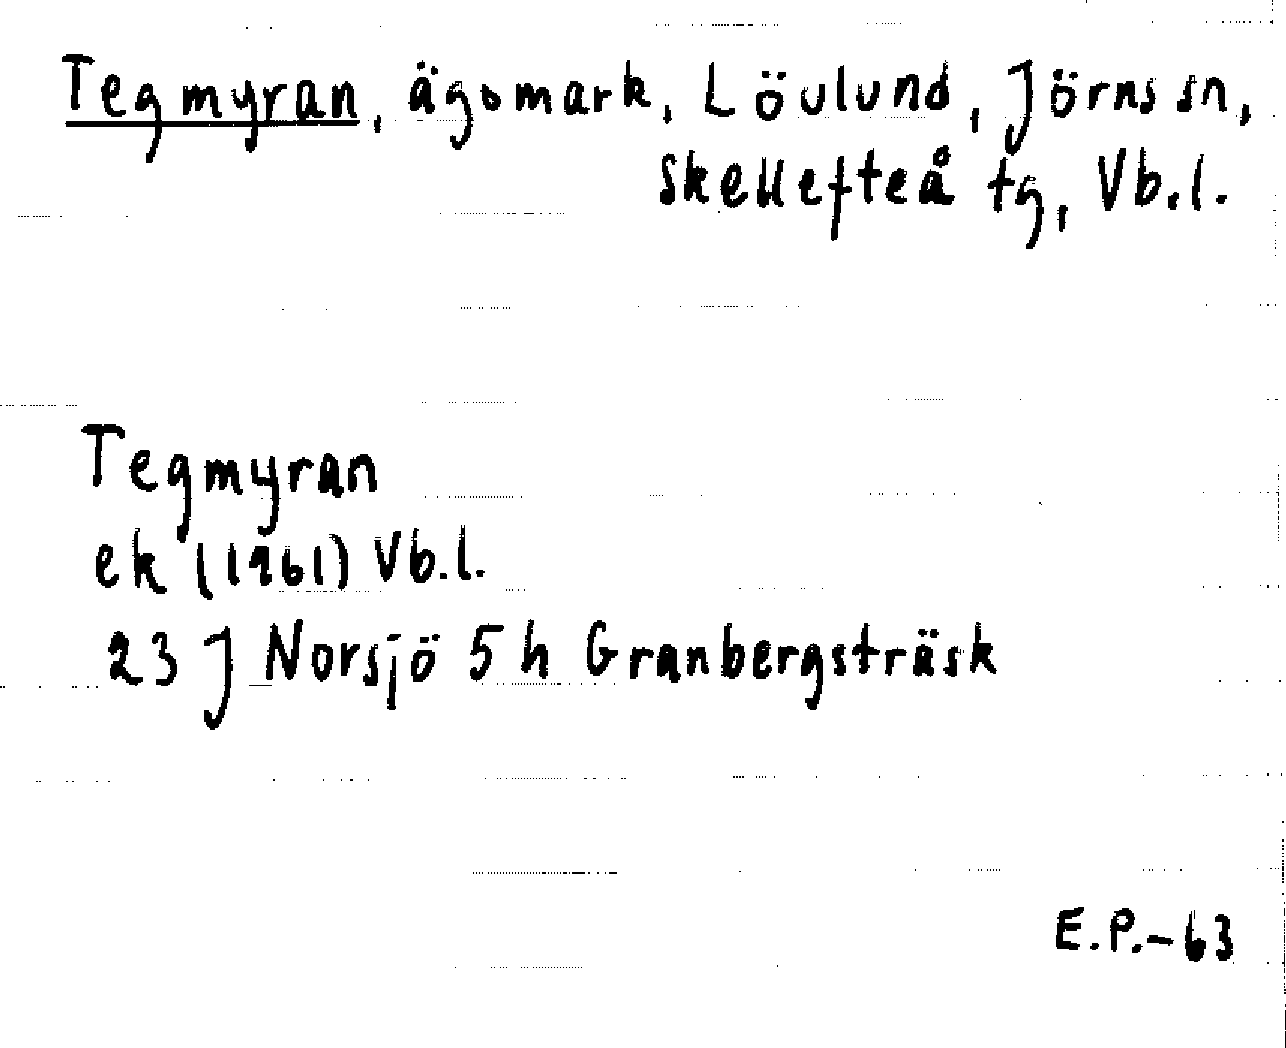 Tegmyran, ägomark, Lövlund, Jörns sn,
Skellefteå tg, Vb.l.
Tegmyran
ek (1961) Vb.l.
23 J Norsjö 5 h Granbergsträsk
E.P.-63